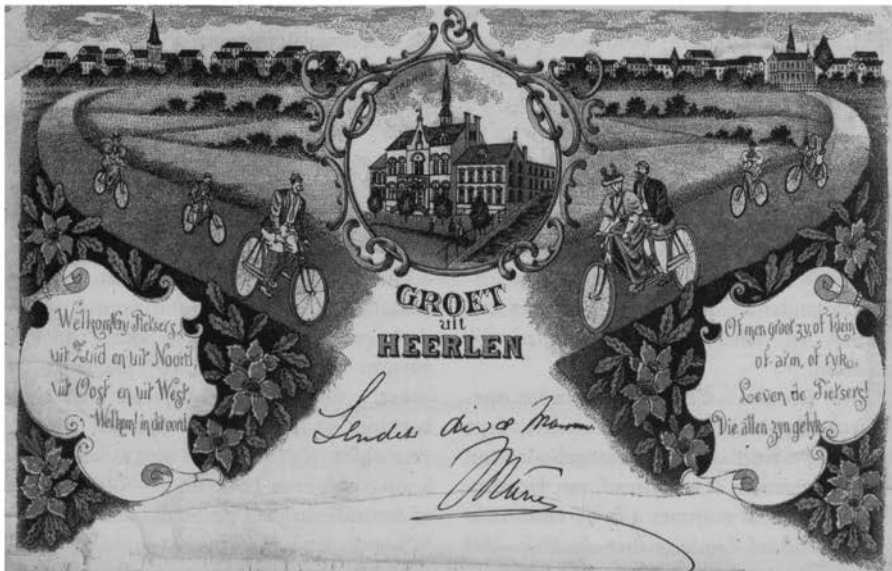 STADHUIS
GROET
uit
HEERLEN
Welkom Gy Fietsers,
uit Zuid en uit Noord,
uit Oost en uit West,
Welkom! in dit oord.
Of men groot zy, of klein
of arm, of ryk,
Leven de Fietsers!
Die allen zyn gelyk
Sendet